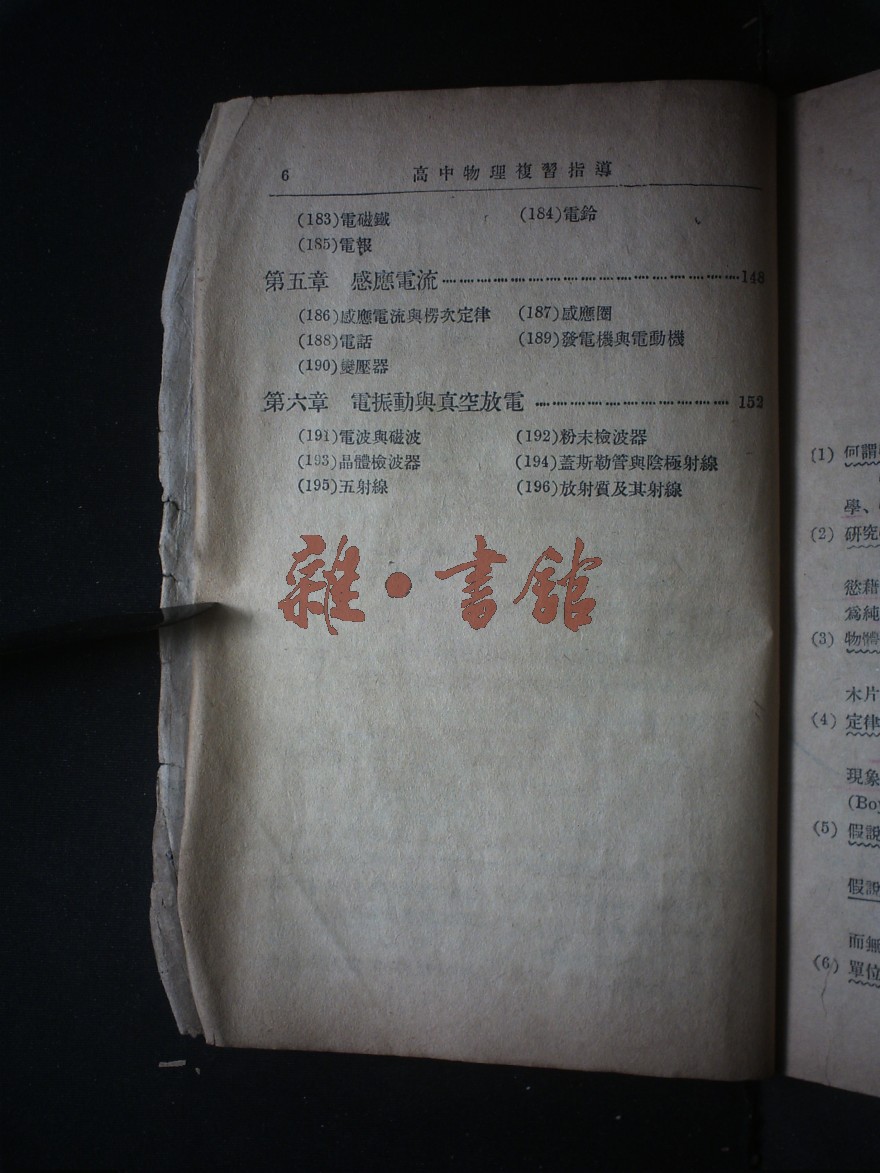 6 高中物理複習指導
(183)電磁鐵 (184)電鈴
(185)電報
第五章 感應電流………………………………148
(186)感應電流與楞次定律 (187)感應圈
(188)電話 (189)發電機與電動機
(190)變壓器
第六章 電振動與真空放電………………………152
(191)電波與磁波 (192)粉末檢波器
(193)晶體檢波器 (194)蓋斯勒管與陰極射線
(195)五射線 (196)放射質及其射線
雜·書館
(1) 何謂
學、
(2) 研究
慾藉
爲純
(3) 物體
木片
(4) 定律
現象
(Boy
(5) 假說
假說
而無
(6) 單位